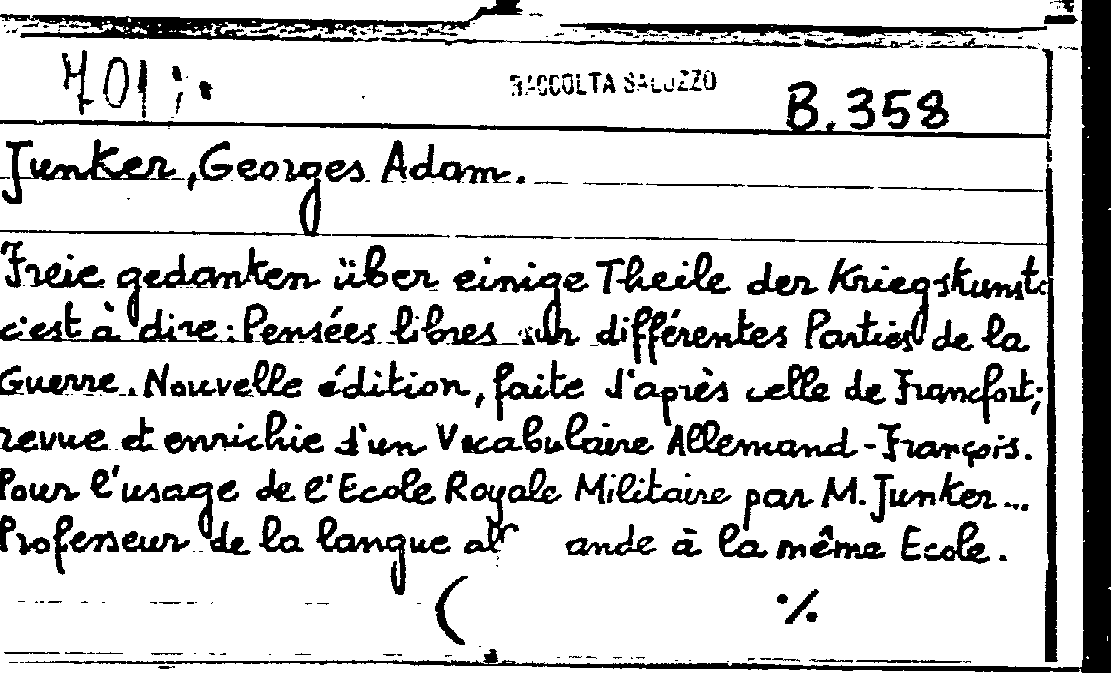 701;. RACCOLTA SALUZZO B.358
Junker, Georges Adam.
Freie gedanken über einige Theile der Kriegskunst
c'est à dire: Pensées libres sur différentes Parties de la
Guerre. Nouvelle édition, faite d'après celle de Francfort;
revue et enrichie d'un Vocabulaire Allemand-François.
Pour l'usage de l'Ecole Royale Militaire par M. Junker...
Professeur de la langue all ande à la même Ecole.
( %